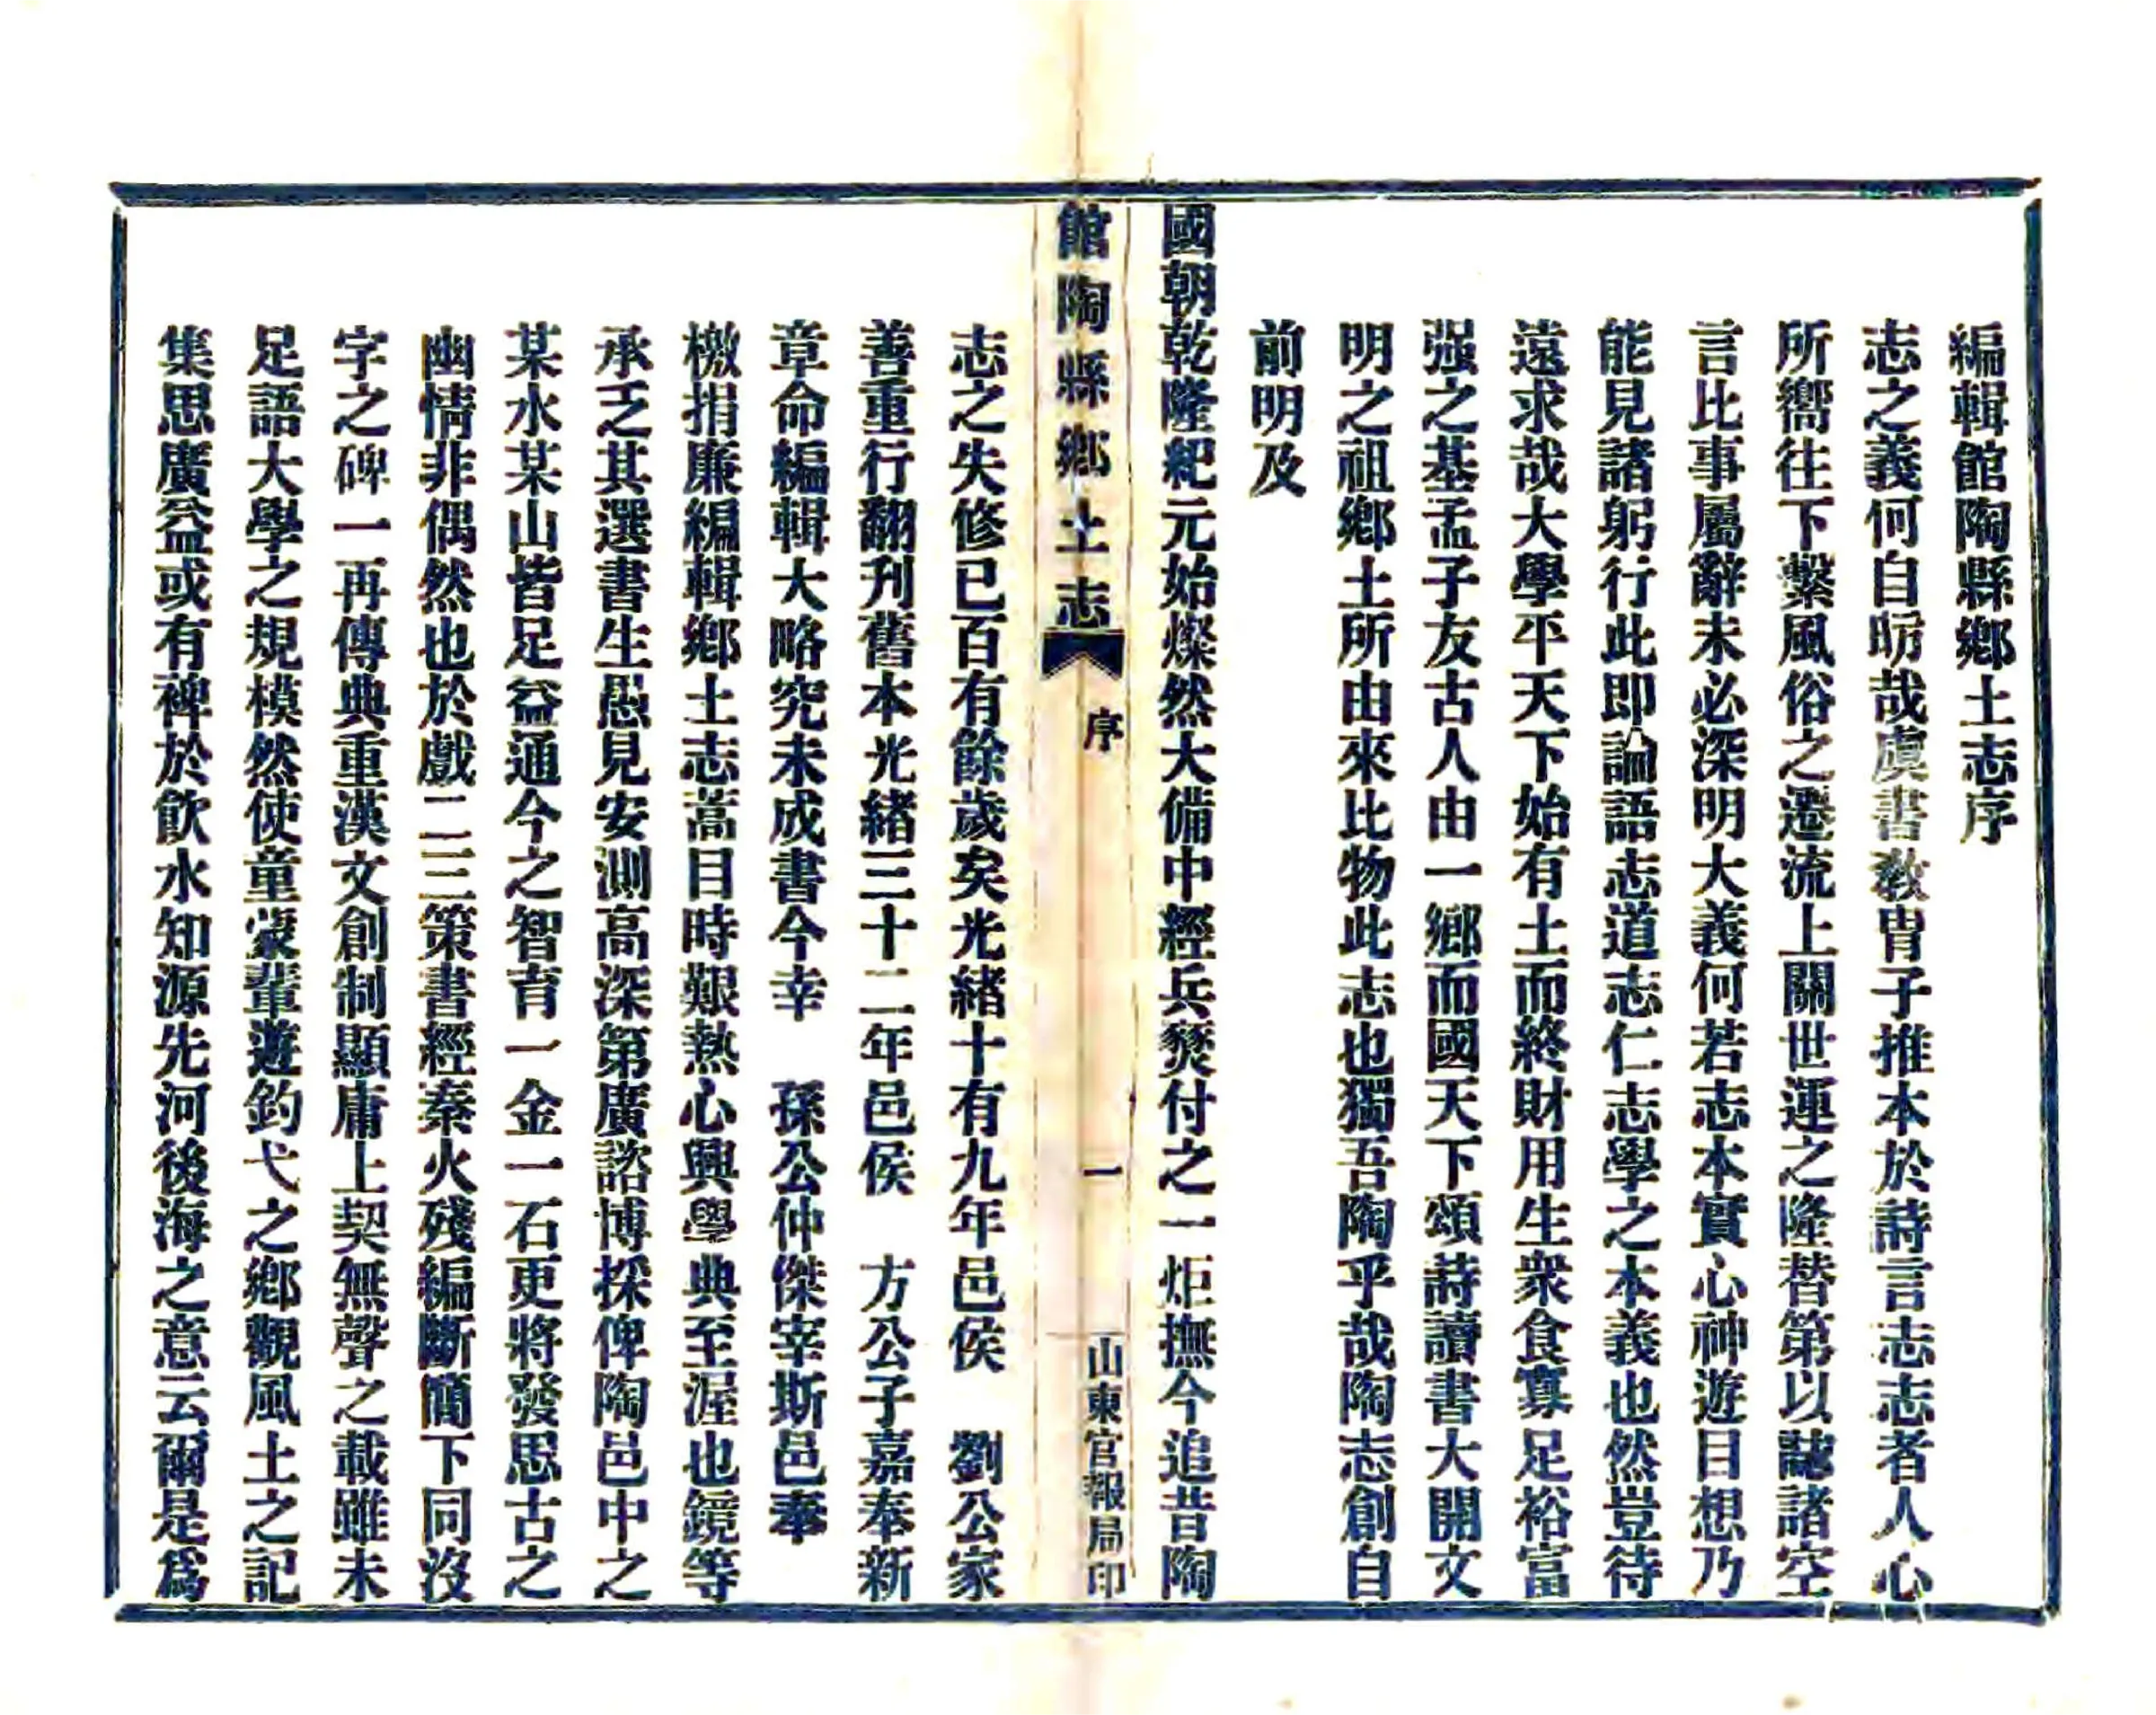 編輯館陶縣鄉土志序
志之義何自昉哉虞書教胄子推本於詩言志志者人心
所嚮往下繫風俗之遷流上關世運之隆替第以誌諸空
言比事屬辭未必深明大義何若志本實心神遊目想乃
能見諸躬行此即論語志道志仁志學之本義也然豈待
遠求哉大學平天下始有土而終財用生衆食寡足裕富
强之基孟子友古人由一鄉而國天下頌詩讀書大開文
明之祖鄉土所由來比物此志也獨吾陶乎哉陶志創自
前明及
國朝乾隆紀元始燦然大備中經兵燹付之一炬撫今追昔陶
館陶縣鄉土志
序
一
山東官報局印
志之失修已百有餘歲矣光緒十有九年邑侯 劉公家
善重行翻刋舊本光緒三十二年邑侯 方公子嘉奉新
章命編輯大略究未成書今幸 孫公仲傑宰斯邑奉
檄捐廉編輯鄉土志蒿目時艱熱心興學典至渥也鏡等
承乏其選書生愚見安測高深第廣諮博採俾陶邑中之
某水某山皆足益通今之智育一金一石更將發思古之
幽情非偶然也於戲二三策書經秦火殘編斷簡下同沒
字之碑一再傳典重漢文創制顯庸上契無聲之載雖未
足語大學之規模然使童蒙輩遊釣弋之鄉觀風土之記
集思廣益或有裨於飲水知源先河後海之意云爾是爲